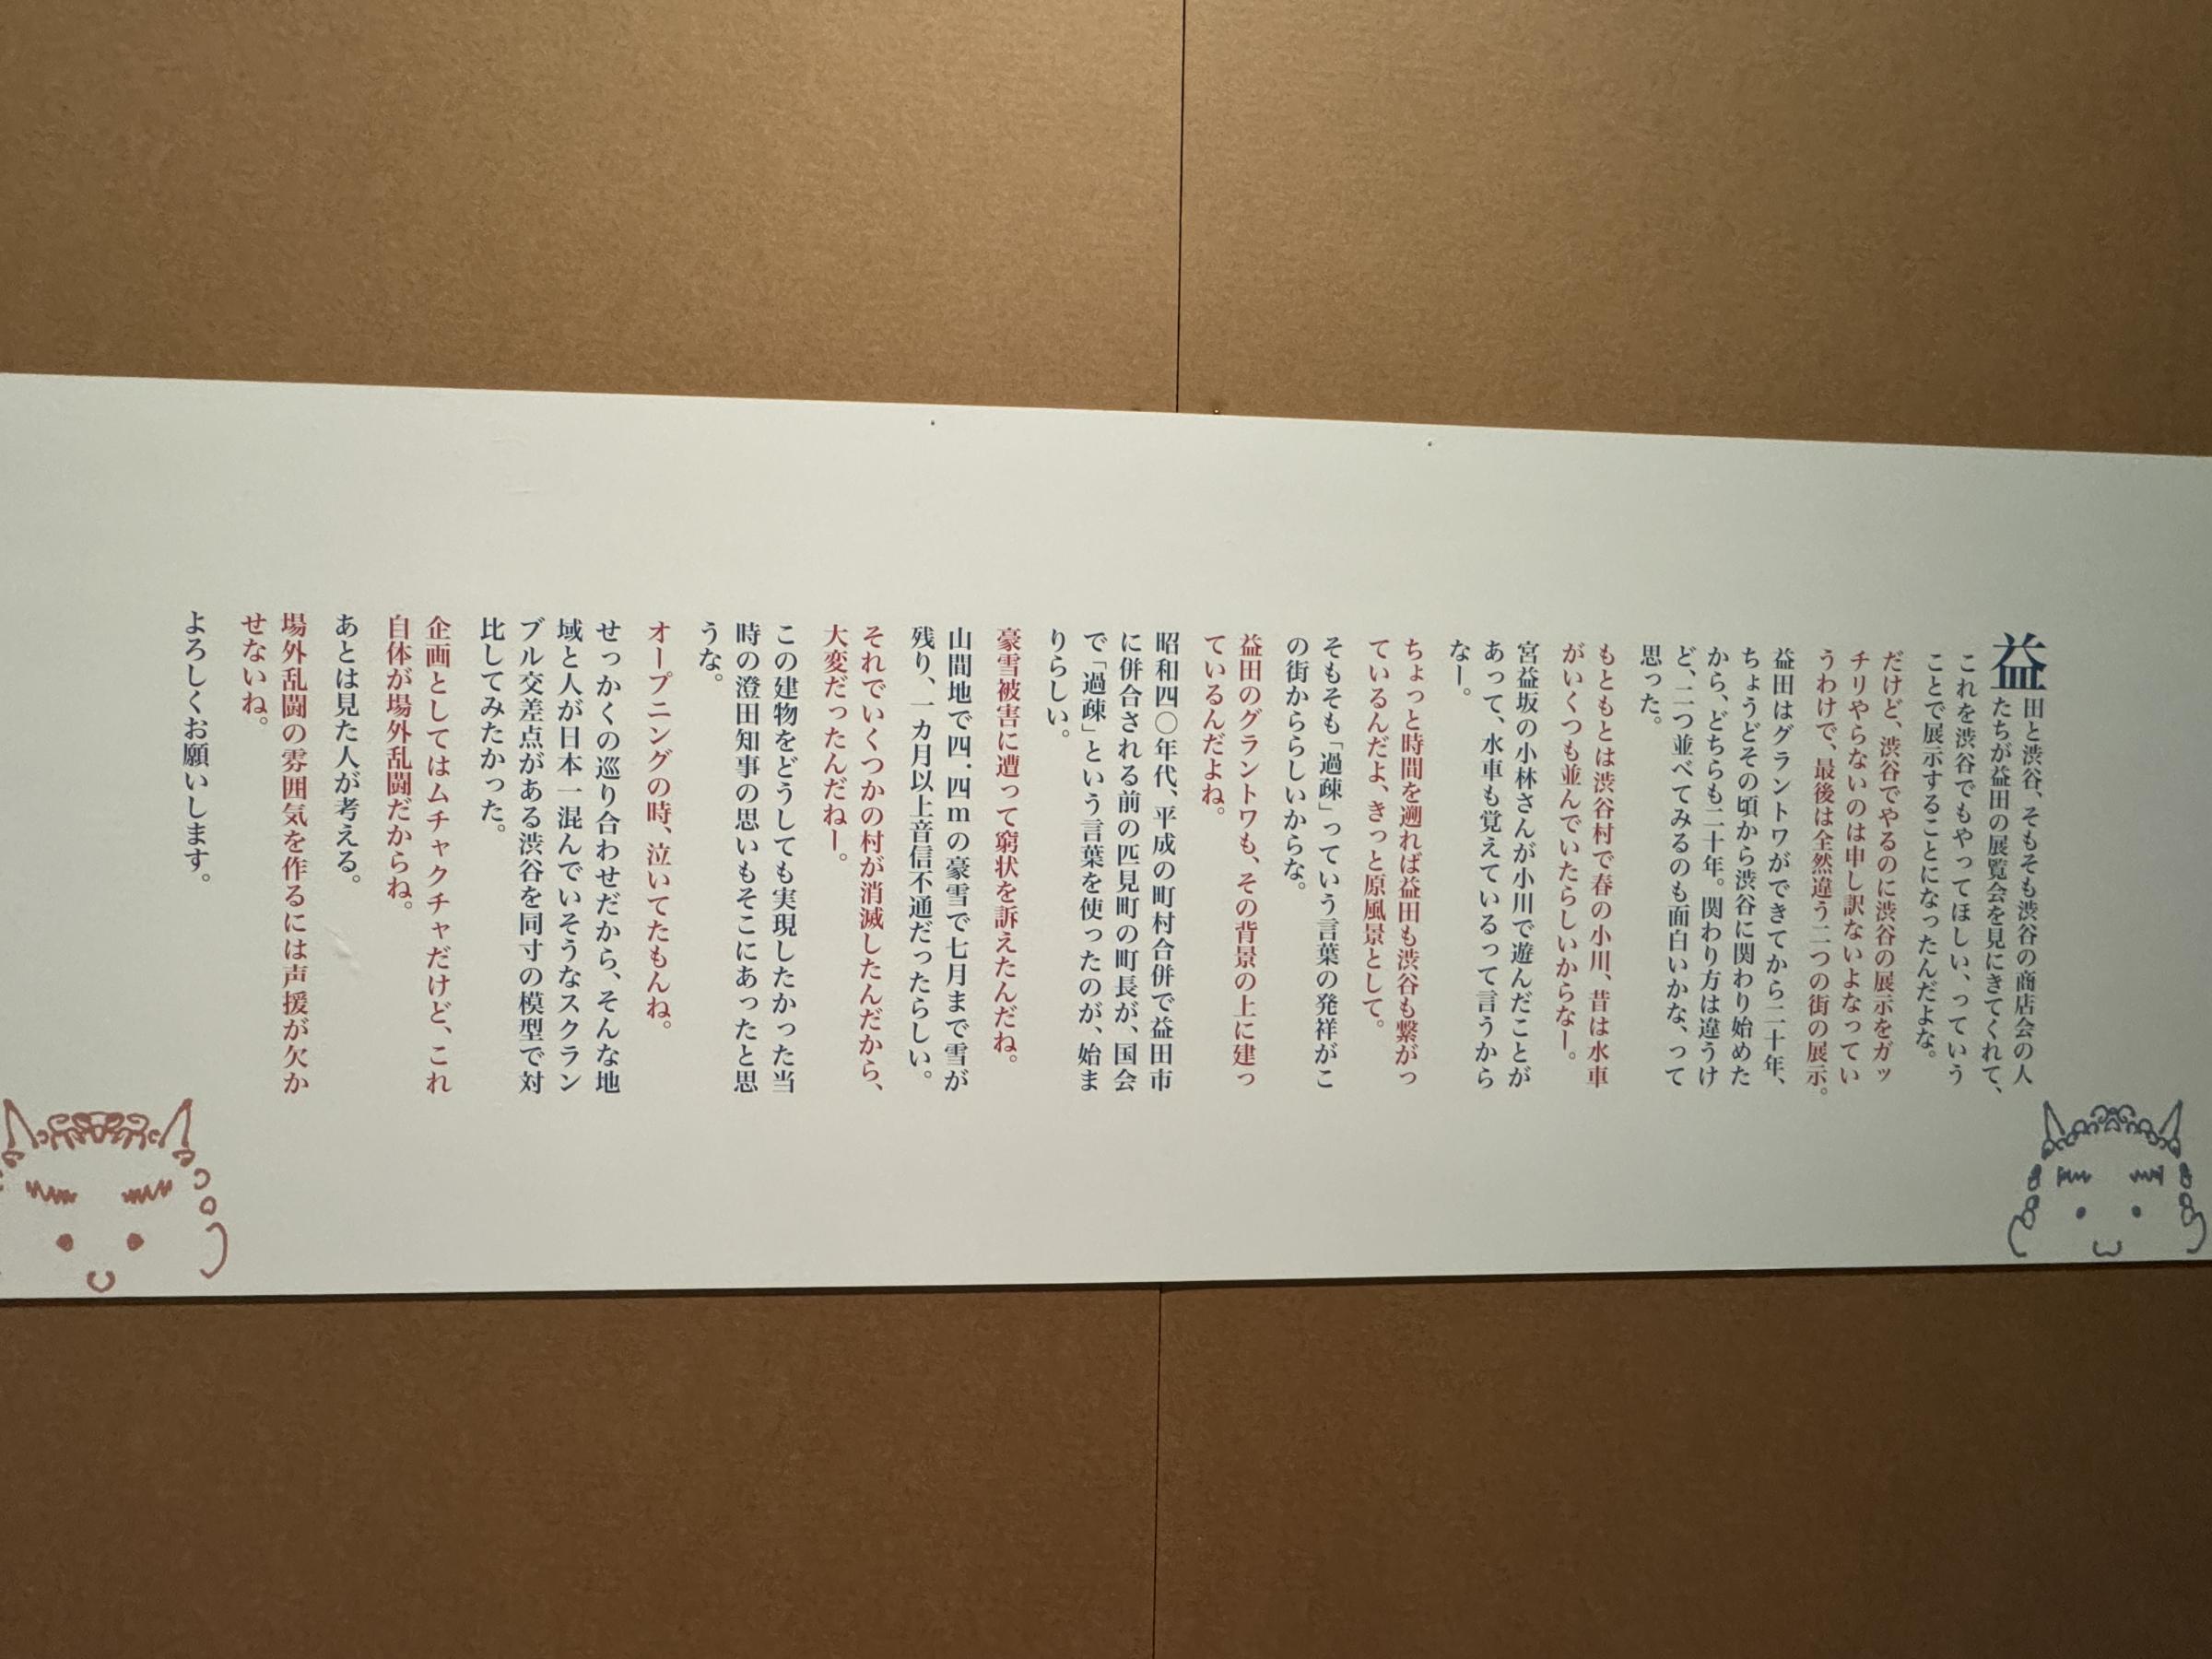 益田と渋谷、そもそも渋谷の商店会の人
たちが益田の展覧会を見にきてくれて、
これを渋谷でもやってほしい、っていう
ことで展示することになったんだよな。
だけど、渋谷でやるのに渋谷の展示をガッ
チリやらないのは申し訳ないよなってい
うわけで、最後は全然違う二つの街の展示。
益田はグラントワができてから二十年、
ちょうどその頃から渋谷に関わり始めた
から、どちらも二十年。関わり方は違うけ
ど、二つ並べてみるのも面白いかな、って
思った。
もともとは渋谷村で春の小川、昔は水車
がいくつも並んでいたらしいからなー。
宮益坂の小林さんが小川で遊んだことが
あって、水車も覚えているって言うから
なー。
ちょっと時間を遡れば益田も渋谷も繋がっ
ているんだよ、きっと原風景として。
そもそも「過疎」っていう言葉の発祥がこ
の街かららしいからな。
益田のグラントワも、その背景の上に建っ
ているんだよね。
昭和四〇年代、平成の町村合併で益田市
に併合される前の匹見町の町長が、国会
で「過疎」という言葉を使ったのが、始ま
りらしい。
豪雪被害に遭って窮状を訴えたんだね。
山間地で四.四mの豪雪で七月まで雪が
残り、一カ月以上音信不通だったらしい。
それでいくつかの村が消滅したんだから、
大変だったんだねー。
この建物をどうしても実現したかった当
時の澄田知事の思いもそこにあったと思
うな。
オープニングの時、泣いてたもんね。
せっかくの巡り合わせだから、そんな地
域と人が日本一混んでいそうなスクラン
ブル交差点がある渋谷を同寸の模型で対
比してみたかった。
企画としてはムチャクチャだけど、これ
自体が場外乱闘だからね。
あとは見た人が考える。
場外乱闘の雰囲気を作るには声援が欠か
せないね。
よろしくお願いします。